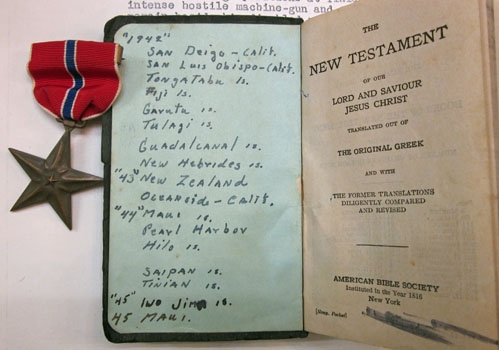 intense hostile machine-gun and
"1942"
San Deigo - Calif.
San Luis Obispo - Calif.
Tongatabu Is.
Fiji Is.
Gavutu Is.
Tulagi Is.
Guadalcanal Is.
New Hebrides Is.
"43" New Zealand
Oceanside - Calif.
"44" Maui Is.
Pearl Harbor
Hilo Is.
Saipan Is.
Tinian Is.
"45" Iwo Jima Is.
45 Maui.
THE
NEW TESTAMENT
OF OUR
LORD AND SAVIOUR
JESUS CHRIST
TRANSLATED OUT OF
THE ORIGINAL GREEK
AND WITH
THE FORMER TRANSLATIONS
DILIGENTLY COMPARED
AND REVISED
AMERICAN BIBLE SOCIETY
Instituted in the Year 1816
New York